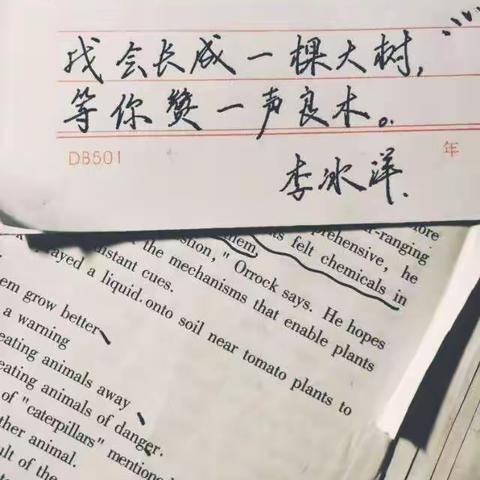 我会长成一棵大树,
等你赞一声良木。
DB501
年
李冰洋.
ore
-ranging
prehensive, he
hem
ts felt chemicals in
stion," Orrock says. He hopes
nstant cues. the mechanisms that enable plants
ayed a liquid.onto soil near tomato plants to
em grow better
a warning
eating animals away
eating animals of danger.
of "caterpillars" mentione
ther animal.
ult of the